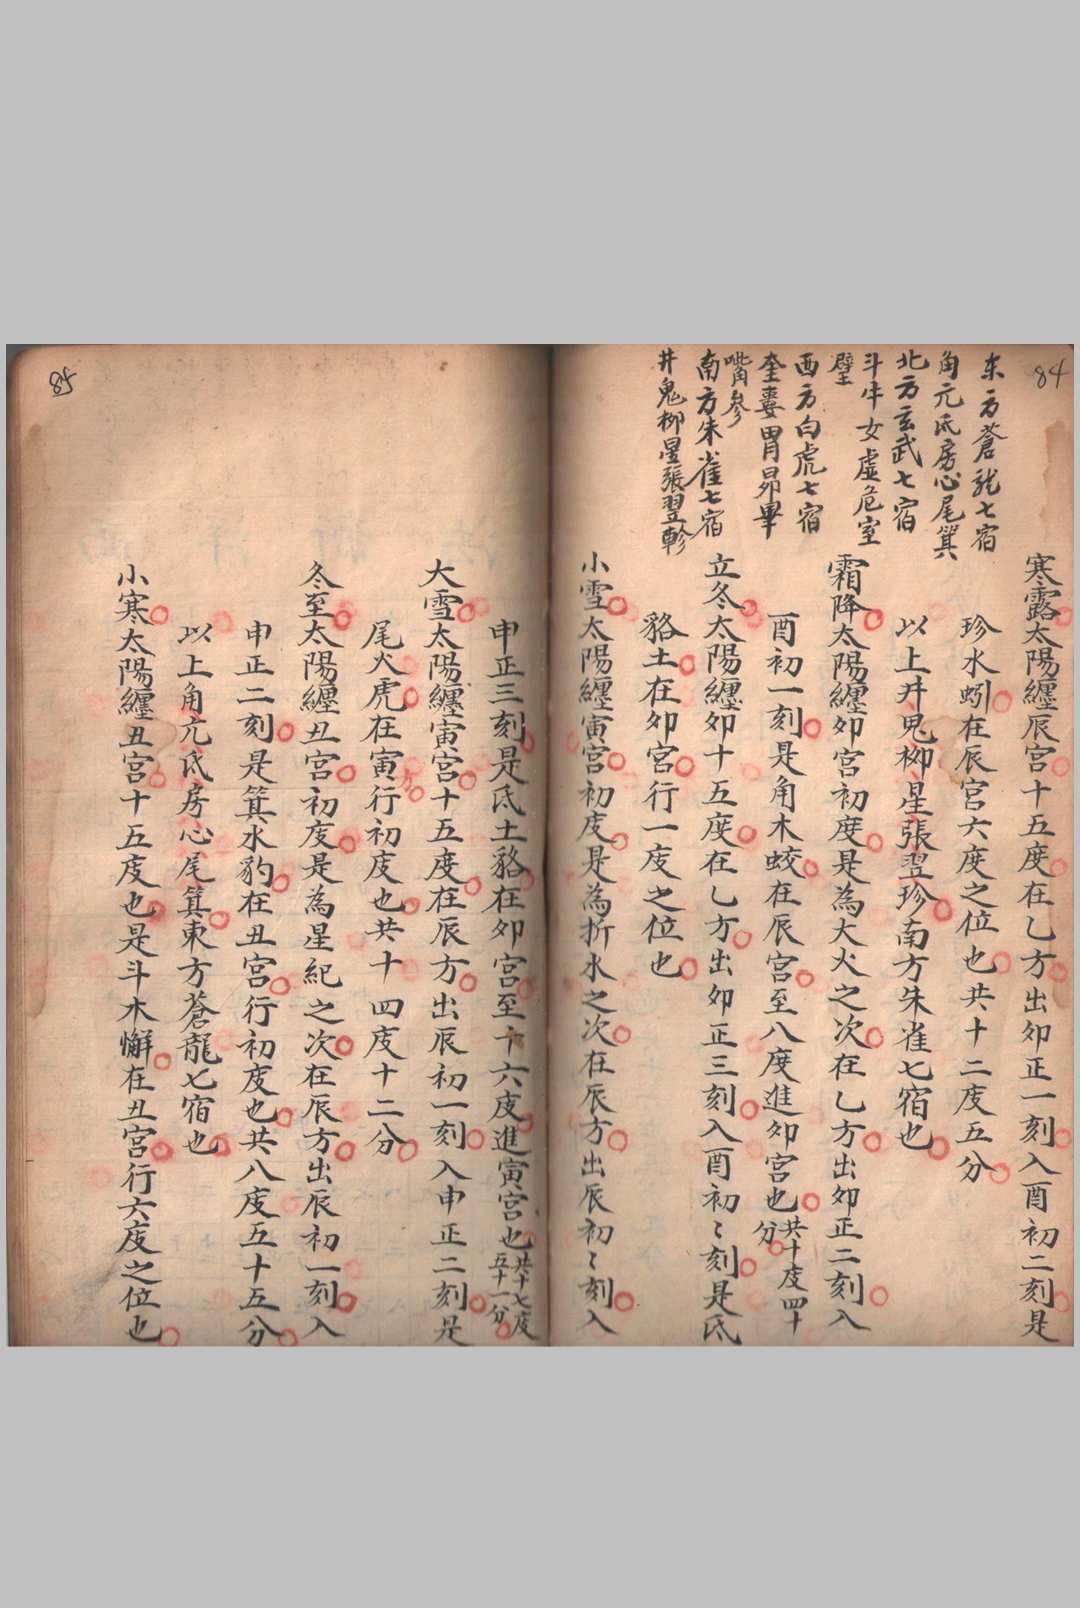 84
东方蒼龙七宿
角亢氐房心尾箕
北方玄武七宿
斗牛女虚危室
壁
西方白虎七宿
奎婁胃昴畢
嘴參
南方朱雀七宿
井鬼柳星張翌軫
寒露太陽纏辰宮十五度在乙方出卯正一刻入酉初二刻是
珍水蚓在辰宮六度之位也共十二度五分
以上井鬼柳星張翌珍南方朱雀七宿也
霜降太陽纏卯宮初度是為大火之次在乙方出卯正二刻入
酉初一刻是角木蛟在辰宮至八度進卯宮也共十度四十
分
立冬太陽纏卯十五度在乙方出卯正三刻入酉初〻刻是氐
貉土在卯宮行一度之位也
小雪太陽纏寅宮初度是為折水之次在辰方出辰初〻刻入
85
申正三刻是氐土貉在卯宮至十六度進寅宮也共十七度
五十一分
大雪太陽纏寅宮十五度在辰方出辰初一刻入申正二刻是
尾火虎在寅方行初度也共十四度十二分
冬至太陽纏丑宮初度是為星紀之次在辰方出辰初一刻入
申正二刻是箕水豹在丑宮行初度也共八度五十五分
以上角亢氐房心尾箕東方蒼龍七宿也
小寒太陽纏丑宮十五度也是斗木懈在丑宮行六度之位也